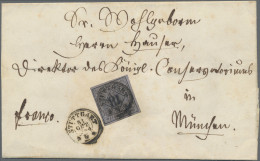 Sr. Wohlgeborn
Herrn Hauser,
Direktor des Königl. Conservatoriums
in
Franco.
München.
STUTTGART